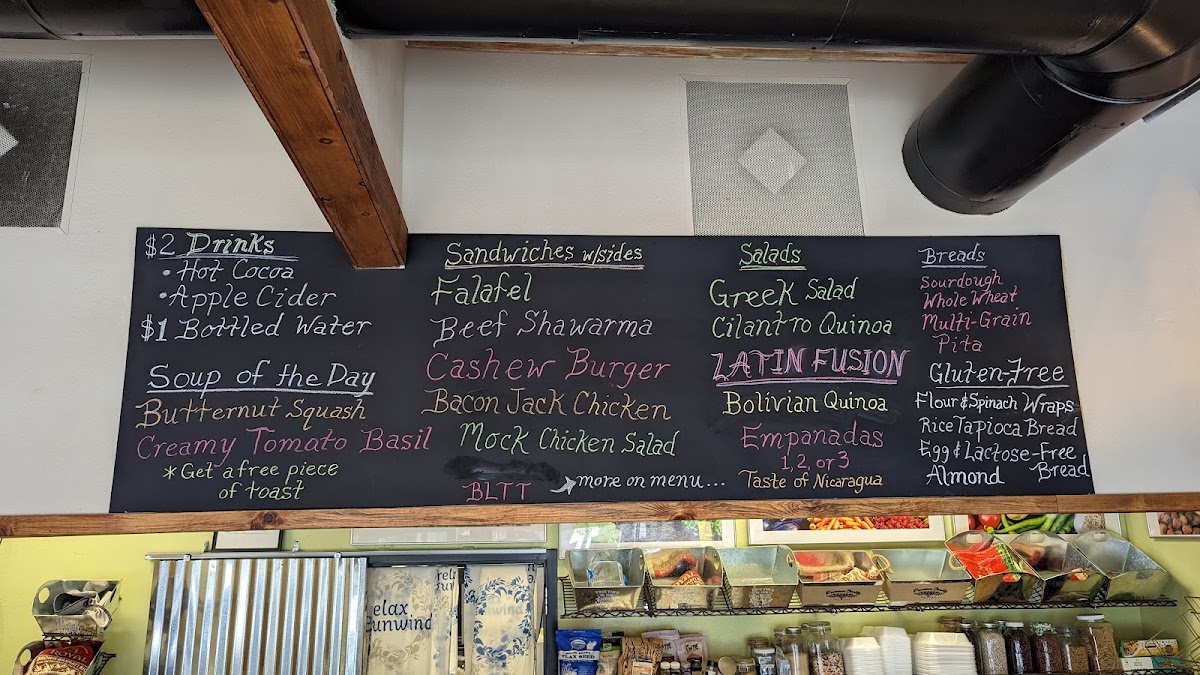 $2 Drinks
• Hot Cocoa
• Apple Cider
$1 Bottled Water
Soup of the Day
Butternut Squash
Creamy Tomato Basil
*Get a free piece
of toast
Sandwiches w/sides
Falafel
Beef Shawarma
Cashew Burger
Bacon Jack Chicken
Mock Chicken Salad
BLTT
more on menu...
Salads
Greek Salad
Cilantro Quinoa
LATIN FUSION
Bolivian Quinoa
Empanadas
1, 2, or 3
Taste of Nicaragua
Breads
Sourdough
Whole Wheat
Multi-Grain
Pita
Gluten-Free
Flour & Spinach Wraps
Rice Tapioca Bread
Egg & Lactose-Free
Almond Bread
relax
unwind
unwind